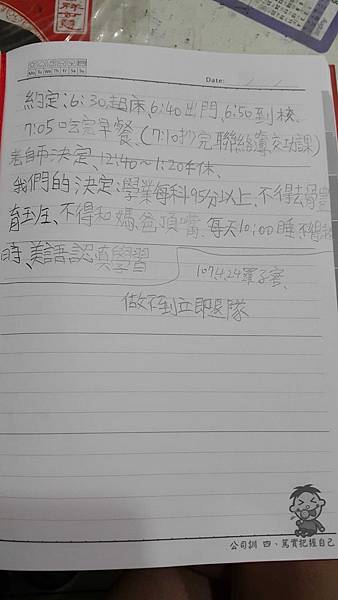 Mo Tu We Th Fr Sa Su
Date: / /
約定:6:30起床、6:40出門、6:50到校、
7:05吃完早餐、(7:10抄完聯絡簿交功課)
老師決定、12:40~1:20午休、
我們的決定:學業每科95分以上、不得去
育班、不得和媽爸頂嘴、每天10:00睡不得
時、美語認真學習
107.4.24羅子
做不到立即退隊
公司訓 四、篤實把握自己